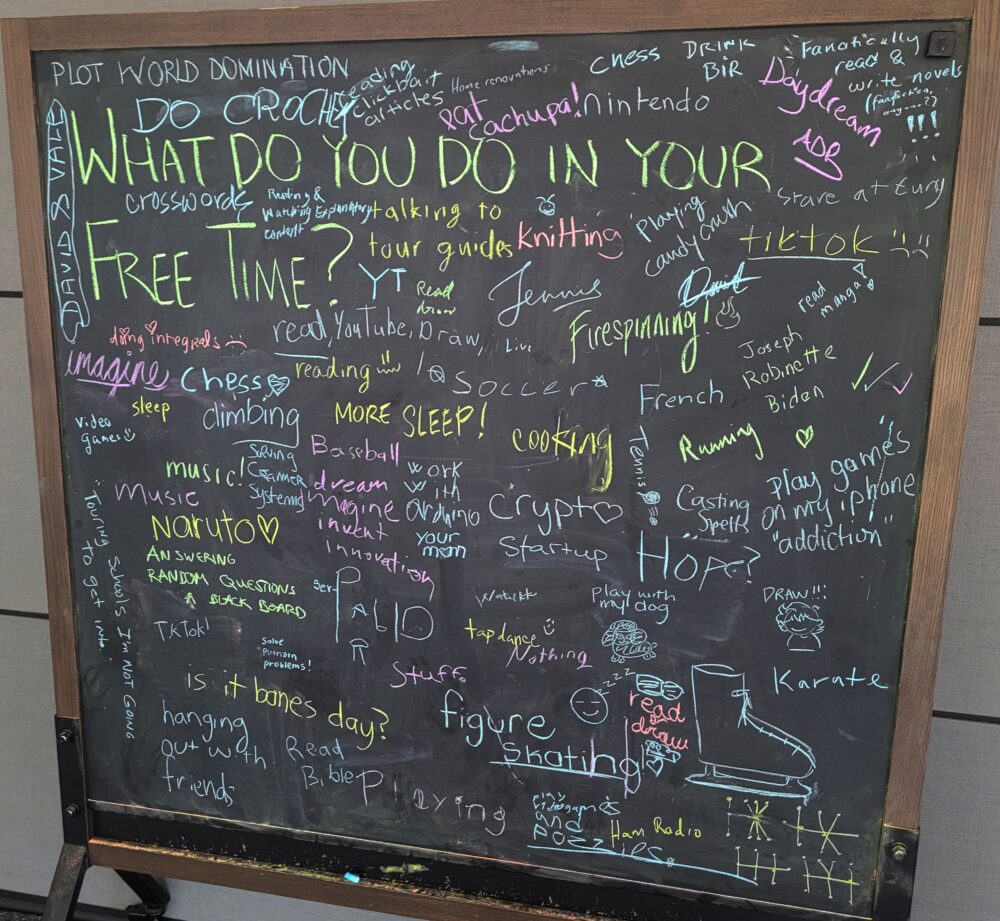 PLOT WORLD DOMINATION
DO CROCHET
reading
clickbait
articles
Home renovations
eat
cachupa!
chess
Nintendo
DRINK
BiR
Daydream
ADR
Fanatically
read &
write novels
!!!
DAVID S VALE
WHAT DO YOU DO IN YOUR
FREE TIME?
crosswords
Reading &
Watching Explanatory
content
talking to
tour guides
knitting
playing
candy crush
stare at
tiktok
YT
Read
draw
Jennis
Firespinning!
read
manga!
doing integrals
read, YouTube, Draw,
Live
imagine
Chess
reading
Soccer
French
Joseph
Robinette
Biden
sleep
climbing
MORE SLEEP!
cooking
Running
video
games
music!
music
Solving
Cramer
Systems
Baseball
dream
imagine
invent
innovation
work
with
arduino
your
mom
Crypto
Startup
Tennis
Casting
Spells
play games
on my iphone
"addiction"
Hope?
Naruto
ANSWERING
RANDOM QUESTIONS
A BLACK BOARD
"Touring Schools I'm Not Going
To get into"
TikTok!
solve
Putnam
problems!
Ser
Pablo
play with
my dog
DRAW!!!
tap dance
Nothing
Stuff
Karate
is it banes day?
figure
Skating
zzzz
read
draw
hanging
out with
friends
Read
Bible
Playing
play
videogames
and
Pozzies.
Ham Radio